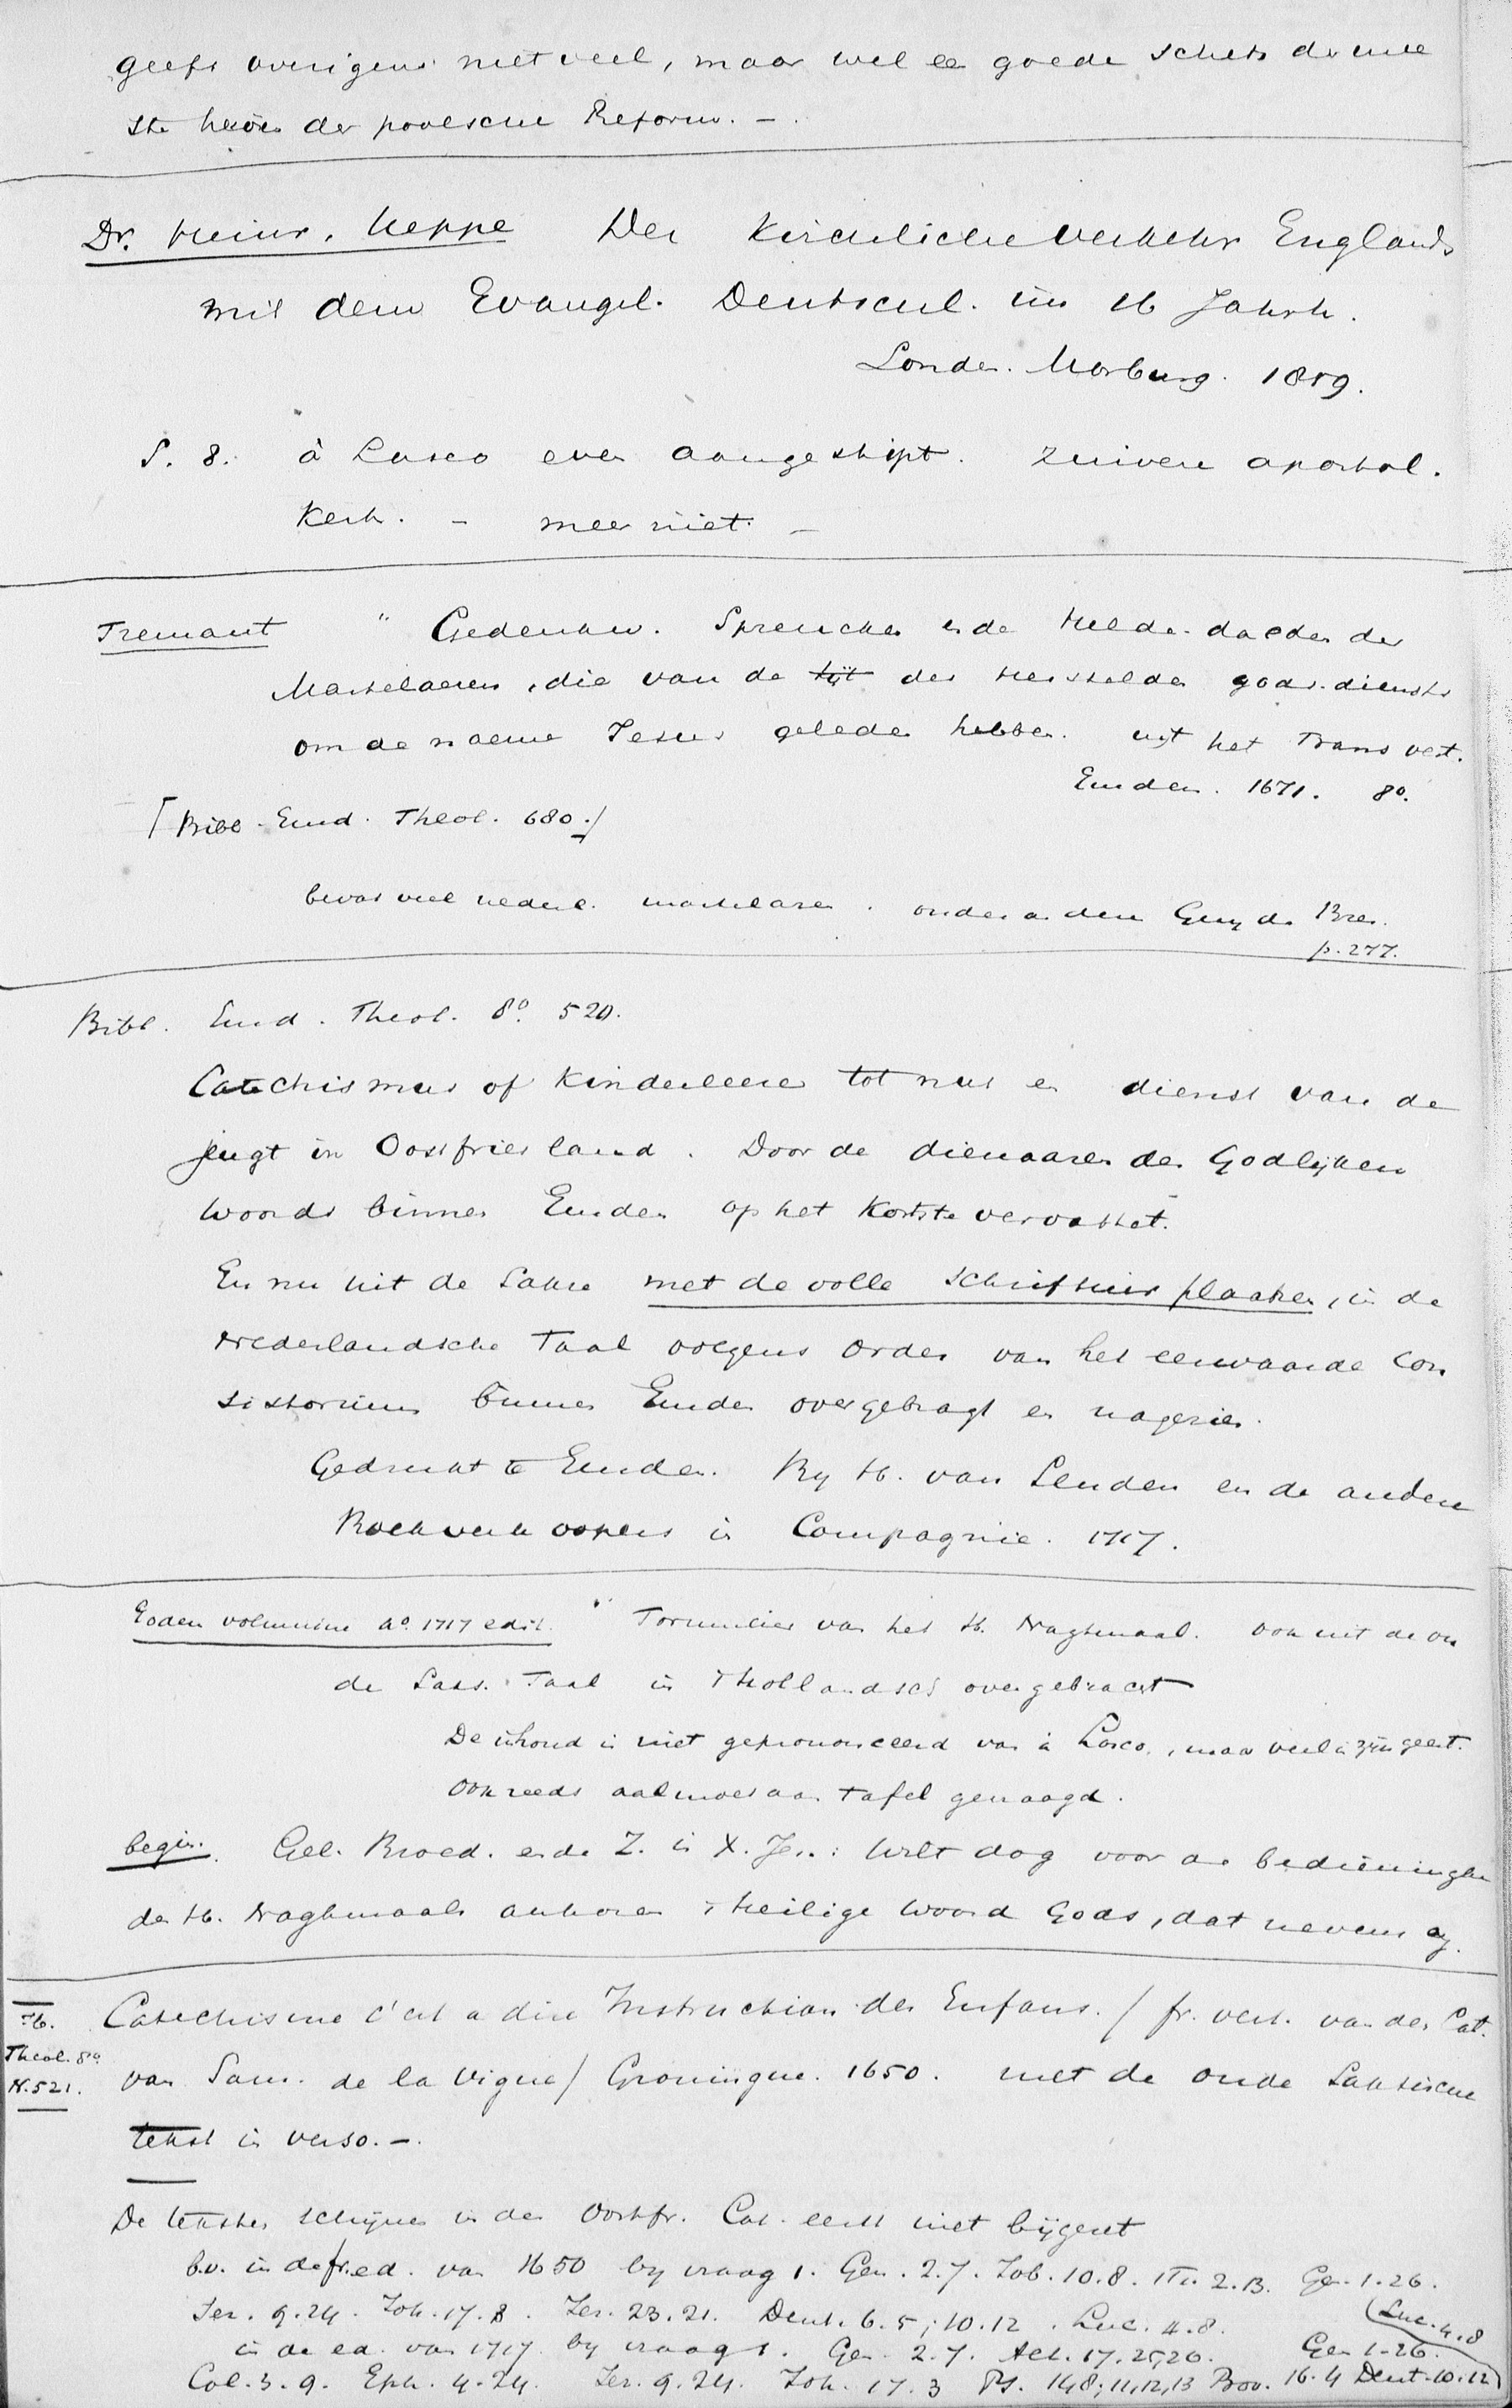 geeft overigens niet veel, maar wel een goede schets der eer
ste der poolsche Reform. -
Dr. Heinr. Heppe Der kirchliche Verkehr Englands
mit dem Evangel. Deutschl. im 16 Jahrh.
Marburg. 1859.
S. 8. à Lasco even aangestipt. zuivere apostol.
Kerk. - meer niet. -
Tremant " Gedenkw. Spreucken ende Helde-daeden der
Martelaeren, die van de tijt des herstelden gods-diensts
om de naeme Jesus geleden hebben. uyt het Frans vert.
Emden. 1671. 8o.
[Bibl. Emd. Theol. 680.]
bevat veel nederl. martelaren. onder andere Guy de Bres.
p. 277.
Bibl. Emd. Theol. 8o. 520.
Catechismus of Kinderleere tot nut en dienst van de
jeugt in Oostfriesland. Door de dienaaren des Godlijken
woords binnen Emden op het kortste vervattet.
En nu uit de Sakse met de volle schriftuur plaatsen, in de
Nederlandsche Taal volgens order van het eerwaarde Con
sistorium binnen Emden overgebragt en nagezien.
Gedrukt te Emden. By H. van Senden en de andere
Boekverkoopers in Compagnie. 1717.
Eodem volumine Ao. 1717 edit. " Formulier van het H. Nagtmaal. Ook uit de ou
de Sass. Taal in 't Hollandsch overgebracht
De inhoud is niet geprononceerd van à Lasco, maar veel in zijn geest.
Ook reeds aalmoes aan tafel gevraagd.
begin. Gel. Broed. ende Z. in X. Jes.: Wilt dog voor de bedieninghe
des H. Naghmaals anhoren 't heilige woord Gods, dat nevens
Ib. Catechisme c'est a dire Instruction des Enfans. / fr. vert. van den Cat.
Theol. 8o van Sam. de la Vigne / Groningue. 1650. met de oude Saksische
N. 521.
tekst in verso. -.
De teksten schijnen in den Oostfr. Cat. eerst niet bijgezet
b.v. in de fr. ed. van 1650 by vraag 1. Gen. 2.7. Job. 10.8. 1 Tim. 2.13. Gen. 1.26.
Jer. 9.24. Joh. 17.3. Jer. 23.21. Deut. 6.5; 10.12. Luc. 4.8.
(Luc. 4.8
in de ed. van 1717 by vraag 1. Gen. 2.7. Act. 17.25,26. Gen 1-26.
Col. 3.9. Eph. 4.24. Jer. 9.24. Joh. 17.3 Ps. 148; 11,12,13 Prov. 16.4 Deut. 10.12)